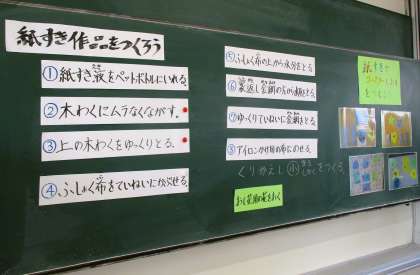 紙すき作品をつくろう
①紙すき液をペットボトルにいれる。
②木わくにムラなくながす。
③上の木わくをゆっくりとる。
④ふしょく布をていねいにかぶせる。
⑤ふしょく布の上から水分をとる。
⑥裏返し金網の方から水分をとる。
⑦ゆっくりていねいに金網をとる。
⑧アイロンかけ用の布にのせる。
くりかえし 小 をつくる
紙すきで
をつくろう